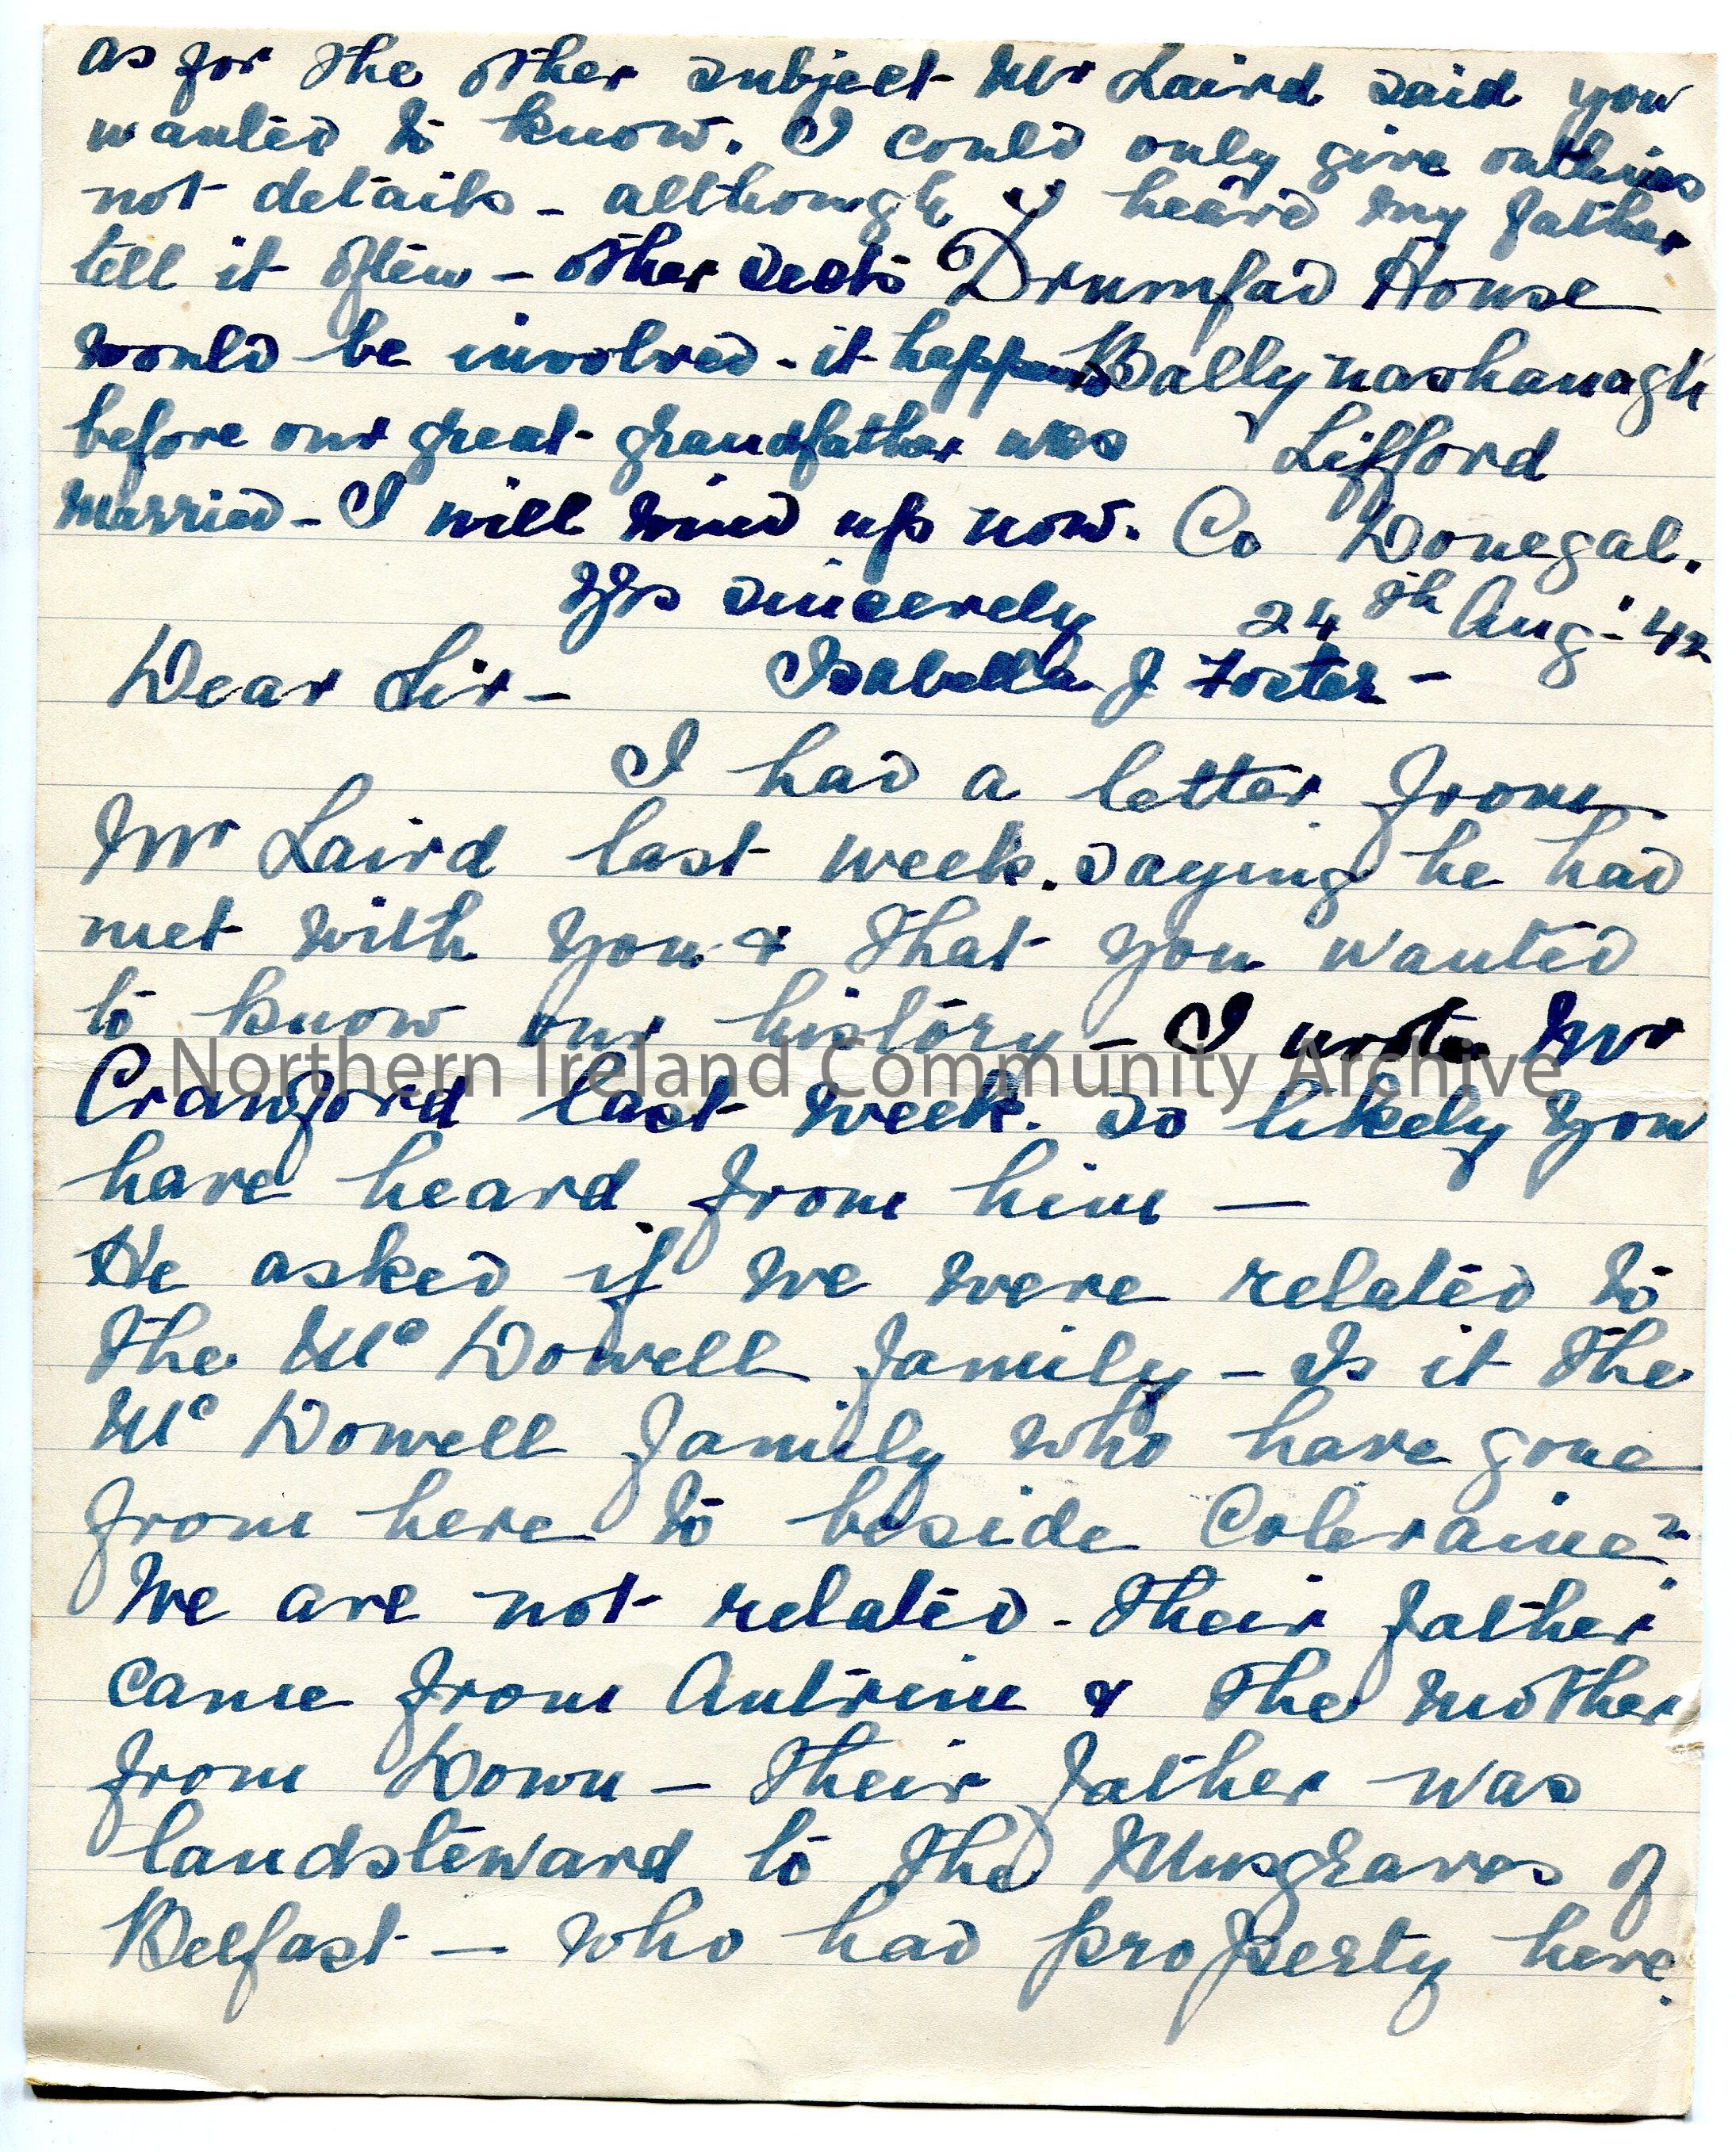 as for the other subject Mr Laird said you
wanted to know. I could only give outlines
not details - although I heard my father
tell it often - other sects
would be involved - it happened
before our great-grandfather was
married - I will wind up now.
Yrs sincerely
Isabella J Foster -
Drumfad House
Ballynashanagh
Lifford
Co Donegal.
24th Aug - '42
Dear Sir -
I had a letter from
Mr Laird last week. saying he had
met with you & that you wanted
to know our history - I wrote Mr
Crawford last week. so likely you
have heard from him -
He asked if we were related to
the Mc Dowell family - Is it the
Mc Dowell family who have gone
from here to beside Coleraine?
We are not related - Their father
came from Antrim & the mother
from Down - Their father was
landsteward to the Musgraves of
Belfast - who had property here.
Northern Ireland Community Archive